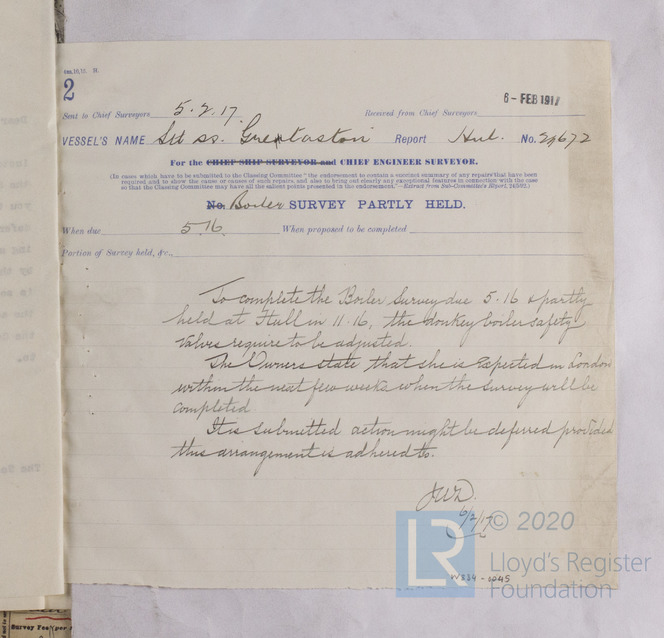 2
Sent to Chief Surveyors 5.2.17. Received from Chief Surveyors 6 - FEB 1917
VESSEL'S NAME ss. Report Hul. No. 29672
For the CHIEF SHIP SURVEYOR and CHIEF ENGINEER SURVEYOR.
(In cases which have to be submitted to the Classing Committee "the endorsement to contain a succinct summary of any repairs that have been
required and to show the cause or causes of such repairs, and also to bring out clearly any exceptional features in connection with the case
so that the Classing Committee may have all the salient points presented in the endorsement."—Extract from Sub-Committee's Report,
No. Boiler SURVEY PARTLY HELD.
When due 5.16 When proposed to be completed
Portion of Survey held, &c.,
To complete the Boiler Survey due 5.16 & partly
held at Hull in 11.16, the donkey boiler safety
valves require to be adjusted.
The Owners state that she is expected in London
within the next few weeks when the survey will be
completed
It is submitted action might be deferred provided
this arrangement is adhered to.
JWD.
6/2/17
W834-0045
LR
© 2020
Lloyd's Register
Foundation
Dear
The Se
Survey Fee (per